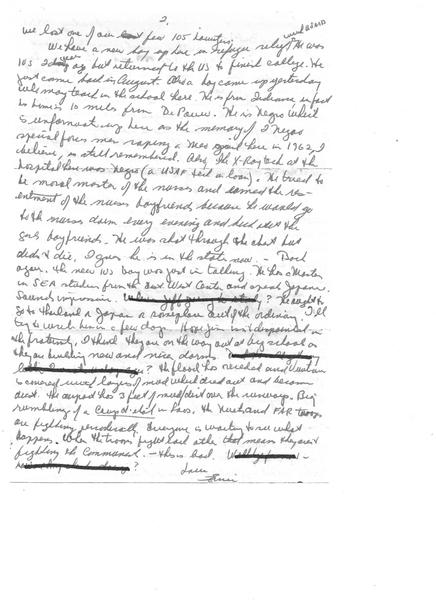 2.
we lost one of our few 105 howitzers.
We have a new boy up here in refugee relief. He was
IVS 2 ago but returned to the US to finish college. He
just came back in August. Also a boy came up yesterday
who may teach in the school here. He is from Indiana in fact
his home is 10 miles from De Pauw. He is Negro which
is unfortunate up here as the memory of 2 Negro
special forces men raping a Meo here in 1962, I
believe, is still remembered. Also the X-Ray tech at the
hospital here was Negro (a USAF tech on loan). He tried to
be moral master of the nurses and earned the re-
sentment of the nurses boyfriends because he would go
to the nurses dorm every evening and kick out the
girls boyfriends. He was shot through the chest but
didn't die, I guess he is in the states now. - Back
again. The new IVS boy was just in talking. He has a Masters
in SEA studies from the East West Center and speaks Japanese.
Sounds impressive. ? He ought to
go to Thailand or Japan or someplace out of the ordinary. I'll
try to write him in a few days. Hope Jim isn't disappointed in
the fraternity, I think they are on the way out at big schools as
they are building new and nice dorms.
? The flood has receded and Vientiane
is covered with layers of mud which dried out and become
dust. The airport has 3 feet of mud/dirt over the runways. Big
rumblings of a Coup d'etat in Laos. The Neutral and FAR troops
are fighting periodically. Everyone is waiting to see what
happens. When the troops fight each other that means they aren't
fighting the Communist. - this is bad.
?
Love
Ernie